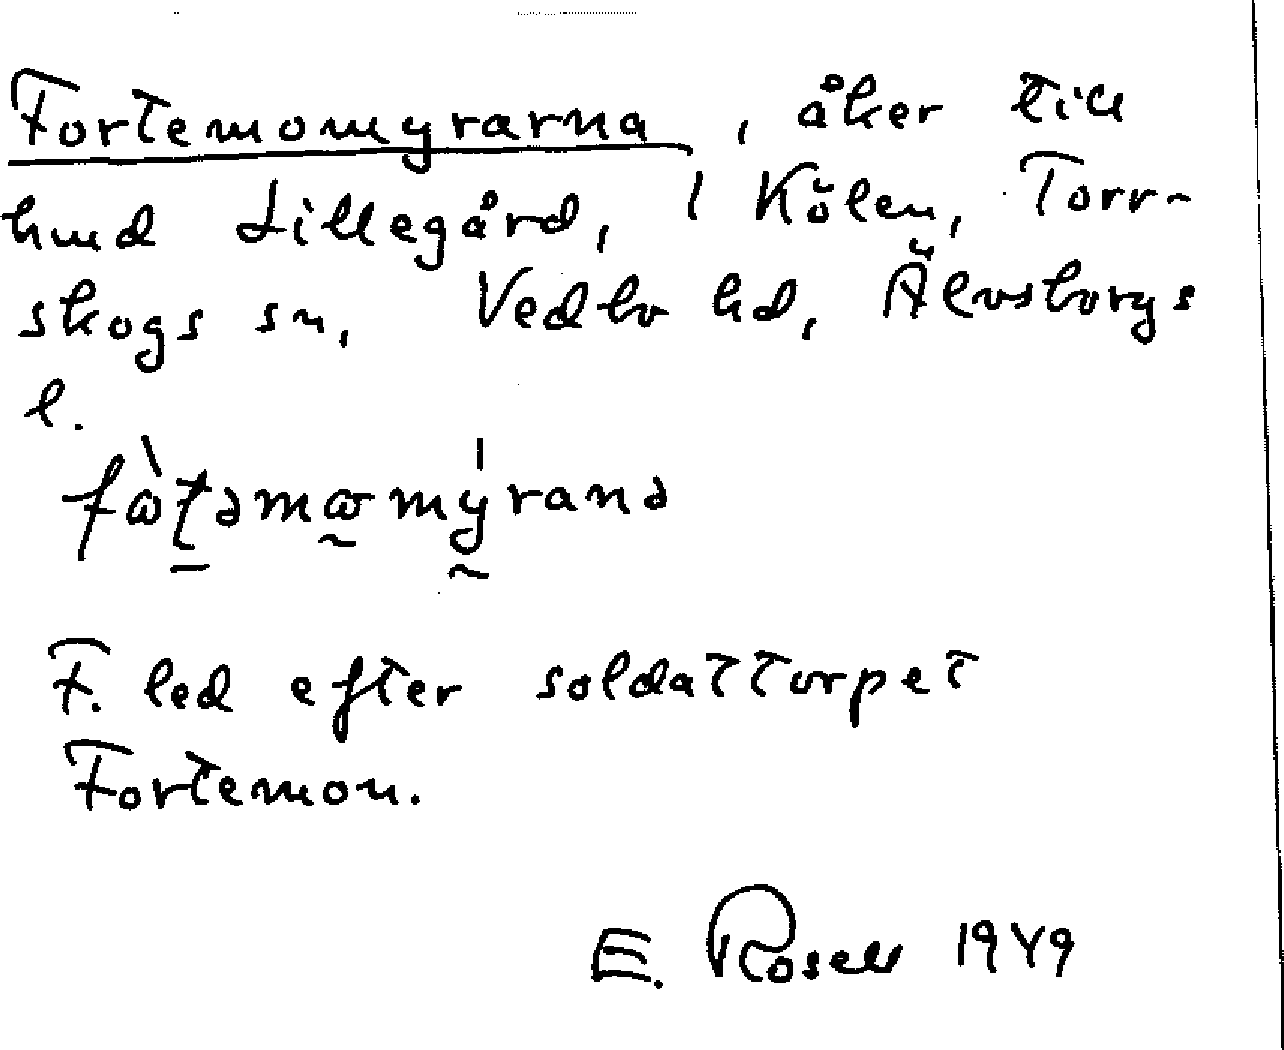 Fortemomyrarna, åker till
hmd Lillegård, 1 Kölen, Torr-
skogs sn, Vedbo hd, Älvsborgs
l.
fὼt̠əmω̰mý̰ranə
F. led efter soldattorpet
Fortemon.
E. Rosell 1949